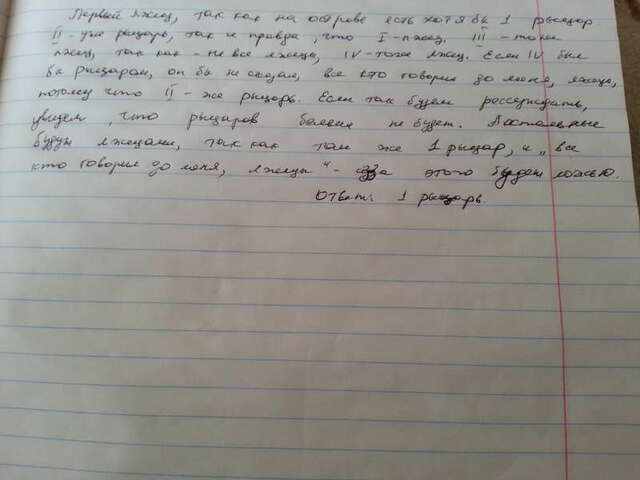 Первый лжец, так как на острове есть хотя бы 1 рыцарь
II - уже рыцарь, так и правда, что I - лжец. III - тоже
лжец, так как - не все лжецы, IV - тоже лжец. Если IV был
бы рыцарем, он бы не сказал, все кто говорил до меня, лжецы,
потому что II - же рыцарь. Если так будем рассуждать,
увидем, что рыцаров больше не будет. Остальные
будут лжецами, так как там же 1 рыцар, и „все
кто говорил до меня, лжецы" - из-за этого будет ложью.
Ответ: 1 рыцарь.